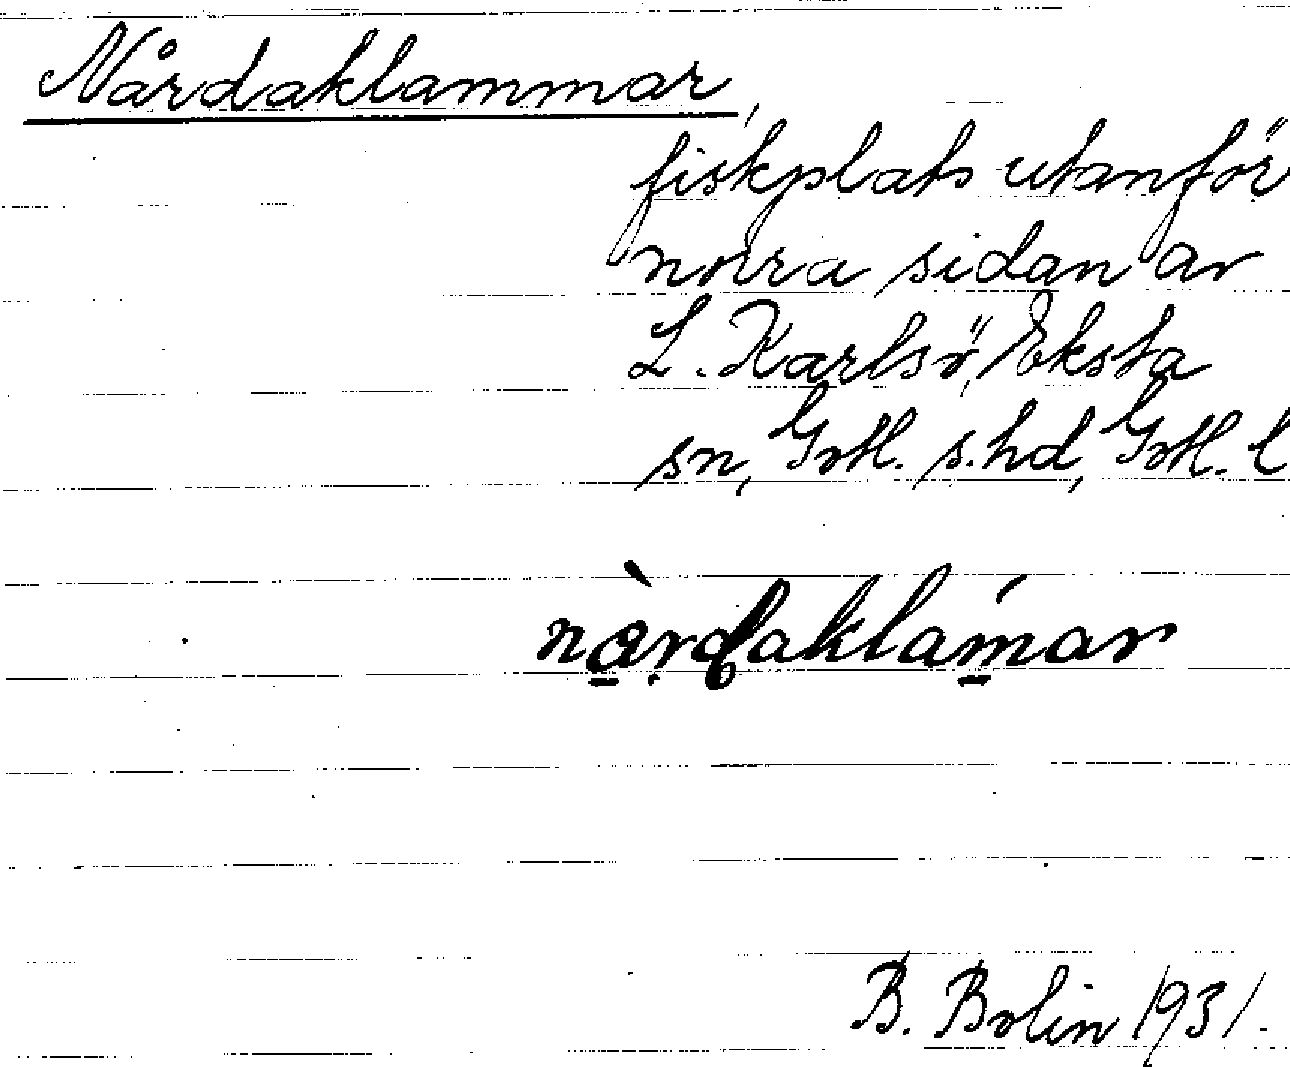 Nårdaklammar,
fiskplats utanför
norra sidan av
L. Karlsö, Eksta
sn, Gotl. s. hd, Gotl. l
nàrdaklámar
B. Bolin 1931.